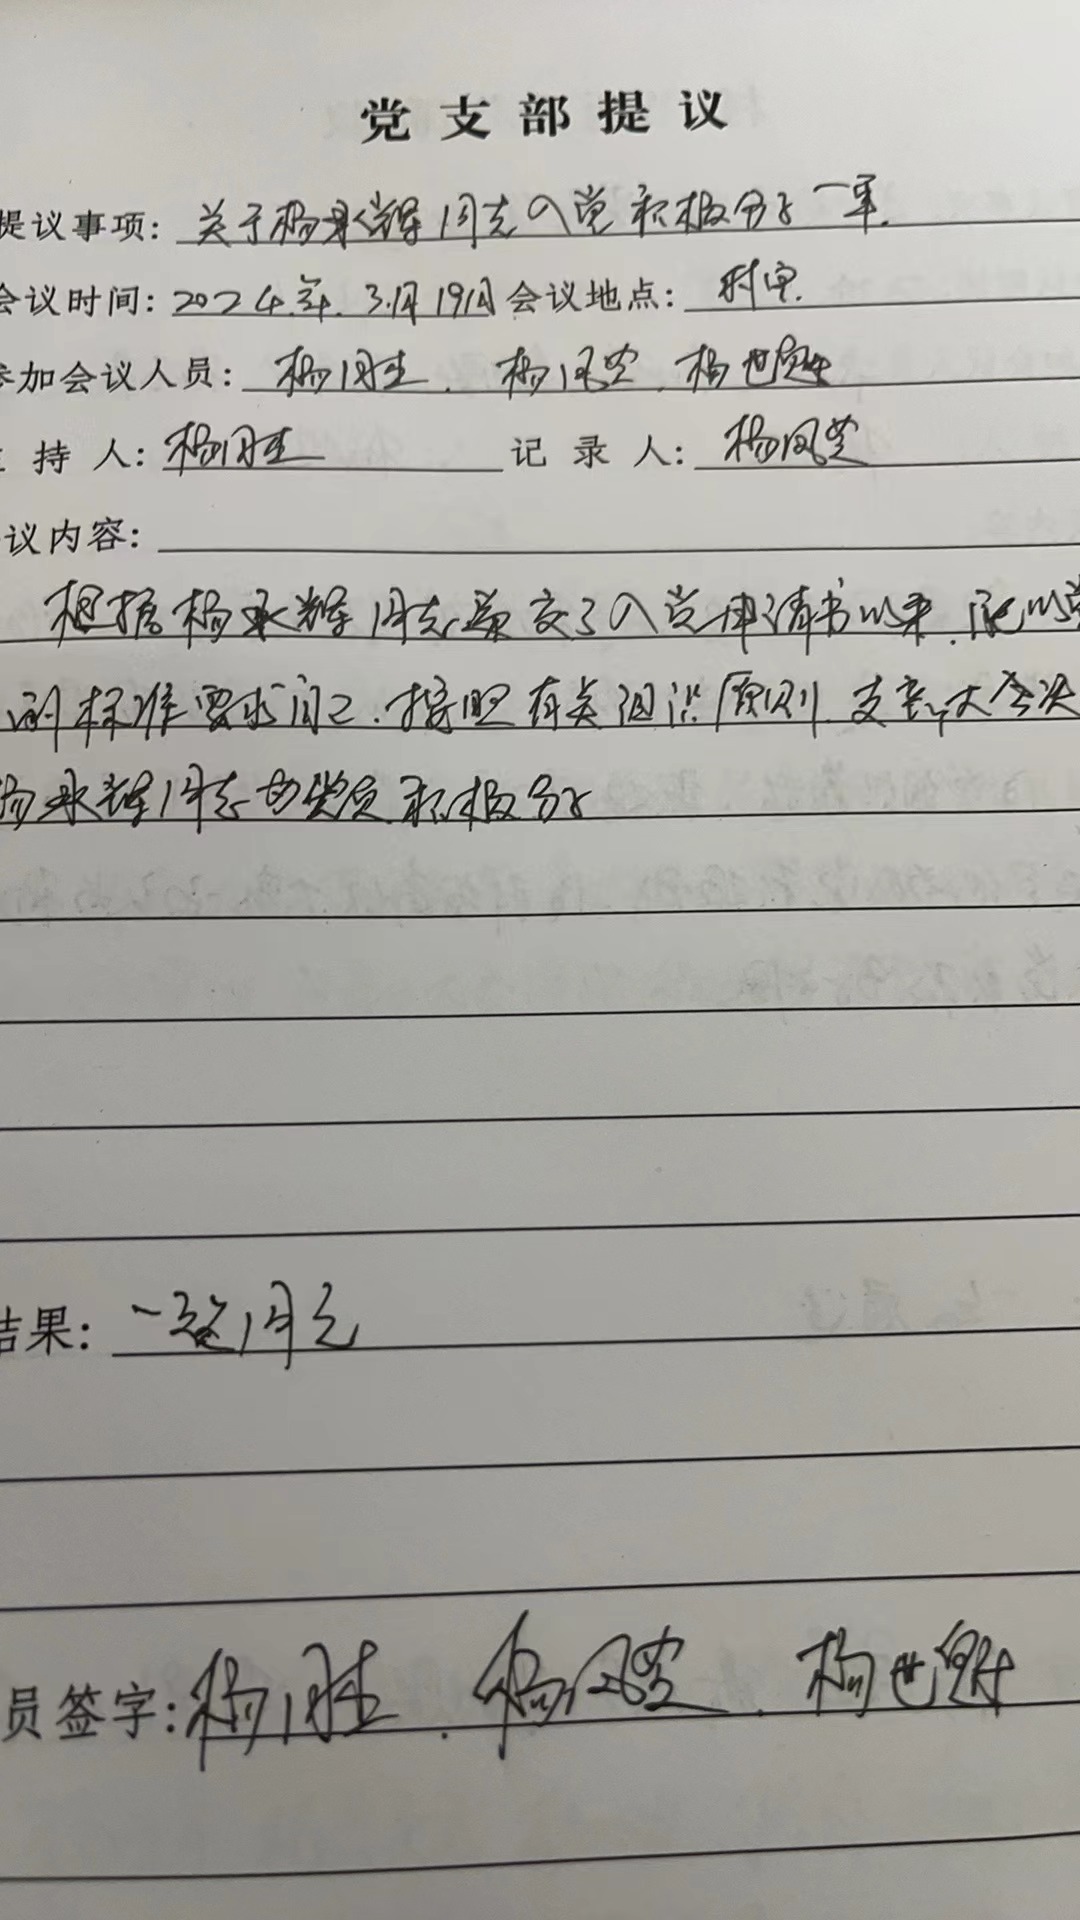 党支部提议
提议事项：关于杨承辉同志入党积极分子一事.
会议时间：2024年.3月19日会议地点：村室.
参加会议人员：杨同生.杨风芝.杨世
主持人：杨同生 记录人：杨风芝
议内容：
根据杨承辉同志递交了入党申请书以来.能以党
标准要求自己.按照有关组识原则.支部大会决
杨承辉同志为党员积极分子
结果：一致同意
员签字：杨同生.杨风芝.杨世